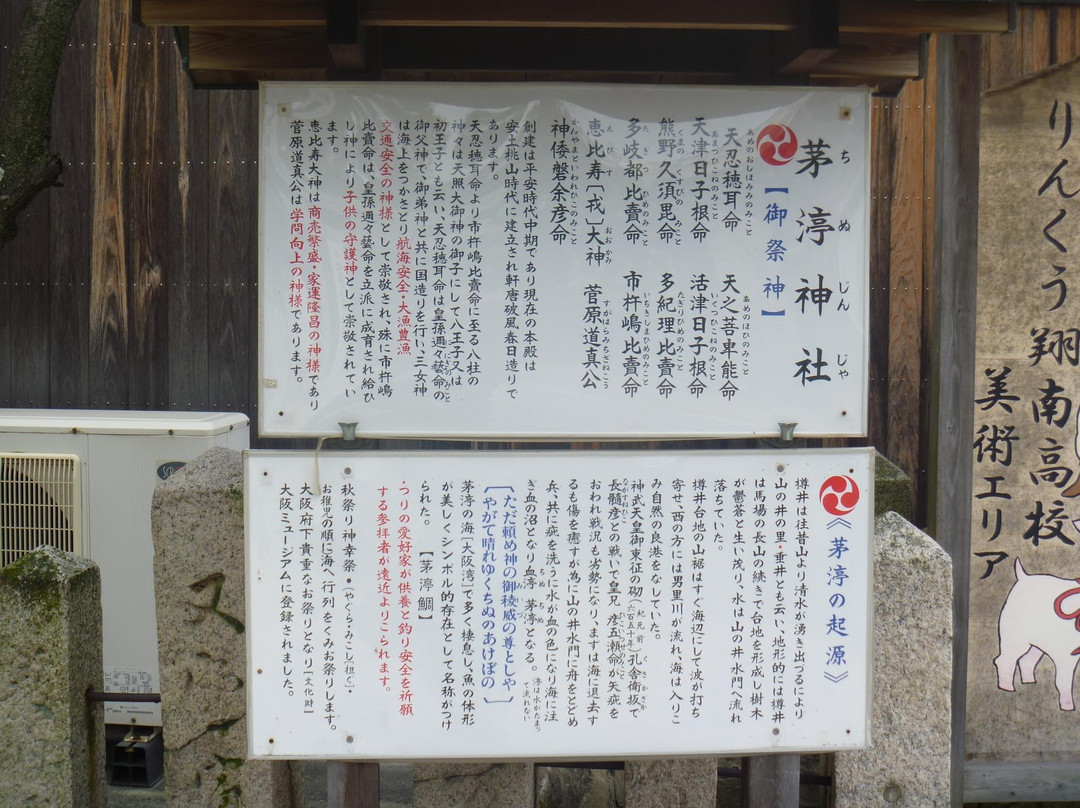 茅渟神社
ちぬじんじゃ
【御祭神】
天忍穂耳命　天之菩卑能命
あめのおしほみみのみこと　あめのほひのみこと
天津日子根命　活津日子根命
あまつひこねのみこと　いくつひこねのみこと
熊野久須毘命　多紀理比賣命
くまのくすびのみこと　たぎりひめのみこと
多岐都比賣命　市杵嶋比賣命
たきつひめのみこと　いちきしまひめのみこと
恵比寿〔戎〕大神　菅原道真公
えびす　おおかみ　すがはらみちざねこう
神倭磐余彦命
かんやまといわれひこのみこと
創建は平安時代中期であり現在の本殿は
安土桃山時代に建立され軒唐破風春日造りで
あります。
天忍穂耳命より市杵嶋比賣命に至る八柱の
神々は天照大御神の御子にして八王子又は
初王子とも云い、天忍穂耳命は皇孫邇々藝命の
ににぎのみこと
御父神で、御弟神と共に国造りを行い、三女神
は海上をつかさどり航海安全・大漁豊漁
交通安全の神様として崇敬され、殊に市杵嶋
比賣命は、皇孫邇々藝命を立派に成育され給ひ
し神により子供の守護神として崇敬されてい
ます。
恵比寿大神は商売繁盛・家運隆昌の神様であり
菅原道真公は学問向上の神様であります。
《茅渟の起源》
樽井は往昔山より清水が湧き出づるにより
山の井の里・垂井とも云い、地形的には樽井
は馬場の長山の続きで台地を形成し樹木
が鬱蒼と生い茂り、水は山の井水門へ流れ
落ちていた。
樽井台地の山裾はすぐ海辺にして波が打ち
寄せ、西の方には男里川が流れ、海は入りこ
み自然の良港をなしていた。
神武天皇御東征の砌〔紀元前六百五十年〕孔舎衛坂で
くさかか
長髄彦との戦いで皇兄 彦五瀬命が矢疵を
ながすねひこ　ひこいつせのみこと
おわれ戦況も劣勢になり、ますは海に退去す
るも傷を癒すが為に山の井水門に舟をとどめ
兵、共に疵を洗う に水が血の色になり海に注
ぎ血の沼となり血渟 茅渟となる。〔渟は水がたまって流れない〕
ちぬ　ちぬ
〔ただ頼め神の御稜威の尊としや〕
みづ
〔やがて晴れゆくちぬのあけぼの〕
茅渟の海〔大阪湾〕で多く棲息し、魚の体形
が美しくシンボル的存在として名称がつけ
られた。【茅渟鯛】
・つりの愛好家が供養と釣り安全を祈願
する参拝者が遠近よりこられます。
秋祭り神幸祭・（やぐら・みこし〔担ぐ〕・
お稚児）の順に海へ行列をくみお祭りします。
大阪府下貴重なお祭りとなり〔文化財〕
大阪ミュージアムに登録されました。
りんくう翔南高校
美術エリア